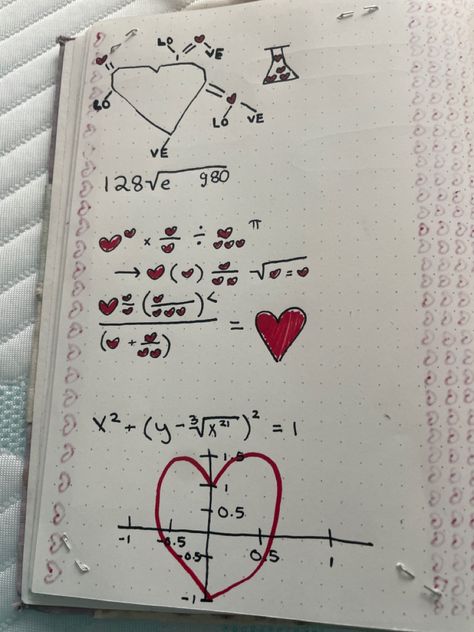 LO VE
LO
LO VE
VE
128√e 980
♥^♥ × ♥/♥ ÷ ♥♥/♥♥♥ π
→ ♥ (♥) ♥/♥♥ √♥=♥
♥ = (♥/♥♥♥)<
(♥ + ♥/♥♥) = ♥
x² + (y - ³√x²)² = 1
1.5
1
0.5
-1 -0.5 0.5 1
-0.5
-1